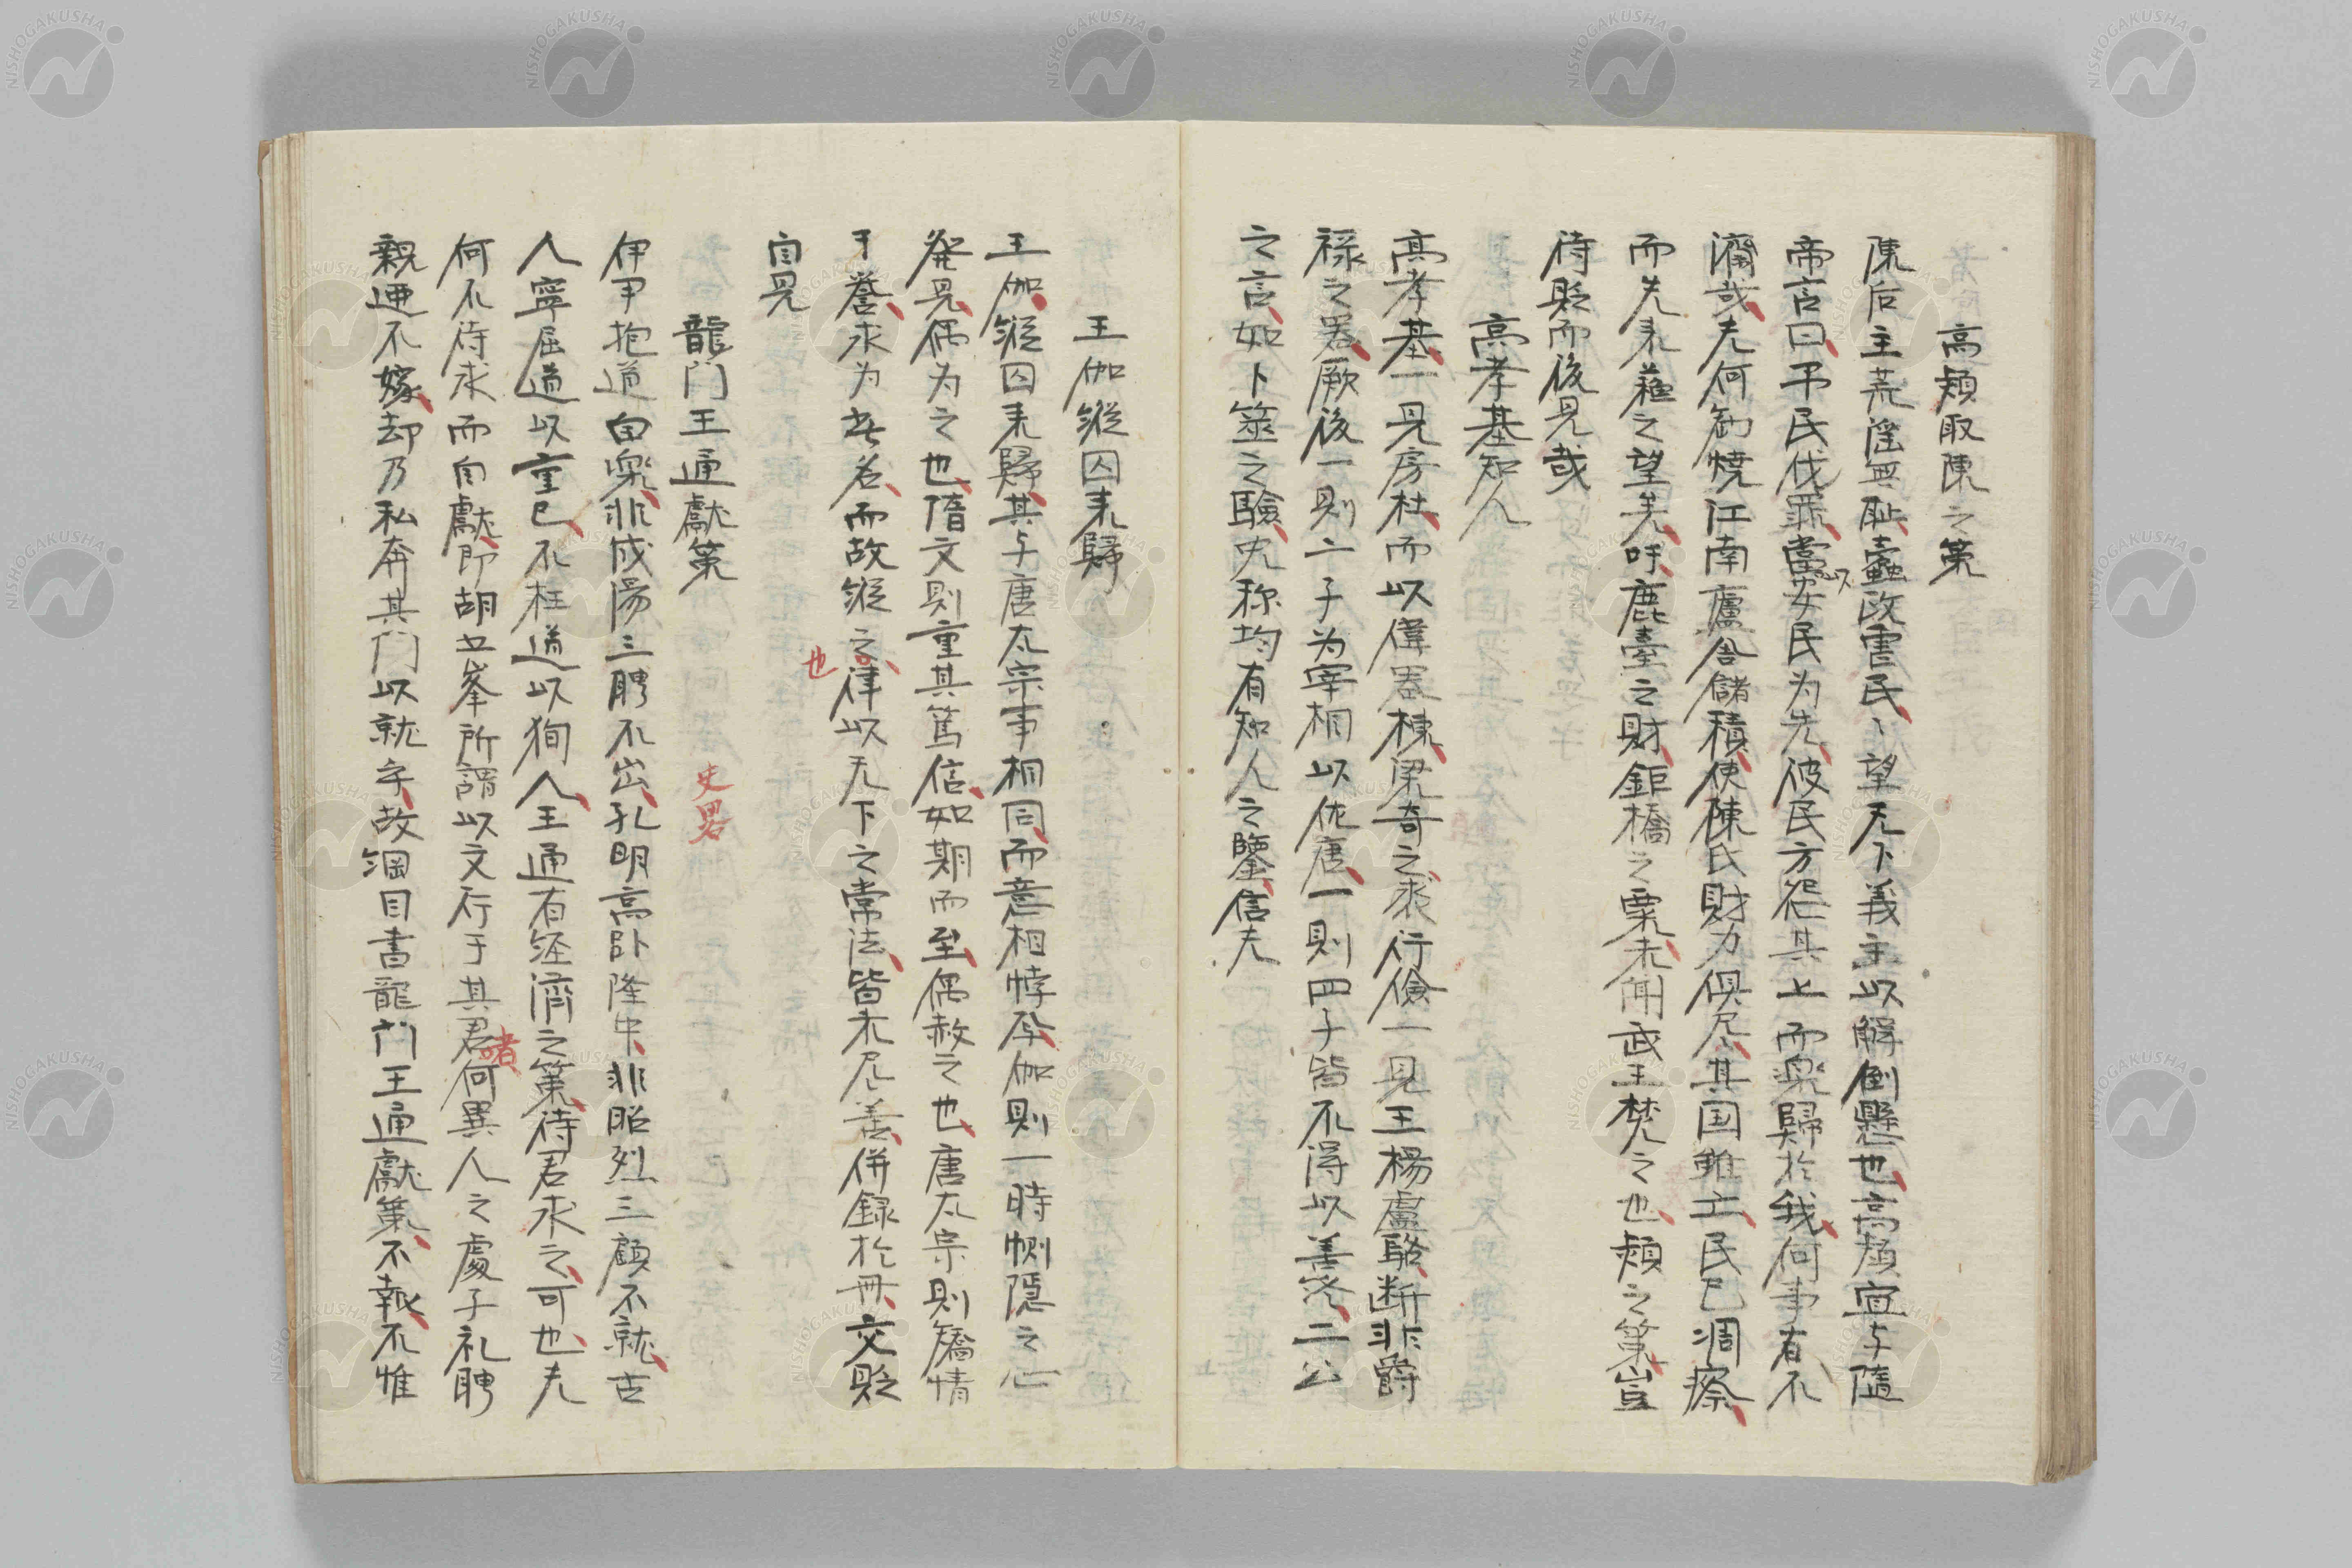 高熲取陳之策
陳后主荒淫無耻蠹政害民丶望天下義主以解倒懸也高熲宜与隨
帝言曰弔民伐罪當以安民为先彼民方怨其上而楽歸於我何事有不
濟哉夫何勧焼江南廬舎儲積使陳氏財力俱尽其国雖亡民已凋瘵
而失来蘓之望矣吁鹿臺之財鉅橋之粟未聞武王焚之也熲之策豈
待貶而後見哉
高孝基知人
高孝基一見房杜而以偉器棟梁奇之裴行儉一見王楊盧駱断非爵
禄之器厥後一則二子为宰相以佐唐一則四子皆不得以善終二公
之言如卜筮之驗史称均有知人之鑒信夫
王伽縦囚来歸
王伽縦囚来歸其与唐太宗事相同而意相悖盖伽則一時惻隠之心
発見偶为之也隋文則重其篤信如期而至偶赦之也唐太宗則矯情
干誉求为此名而故縦之也律以天下之常法皆未尽善併録於冊交貶
自見
龍門王通獻策
史畧
伊尹抱道自楽非成湯三聘不出孔明高卧隆中非昭烈三顧不就古
人寧屈道以重已不枉道以狥人王通有経濟之策待君求之可也夫
何不待求而自獻即胡五峯所謂以文行于其君者何異人之處子礼聘
親迎不嫁却乃私奔其门以就乎故綱目書龍门王通獻策不報不惟